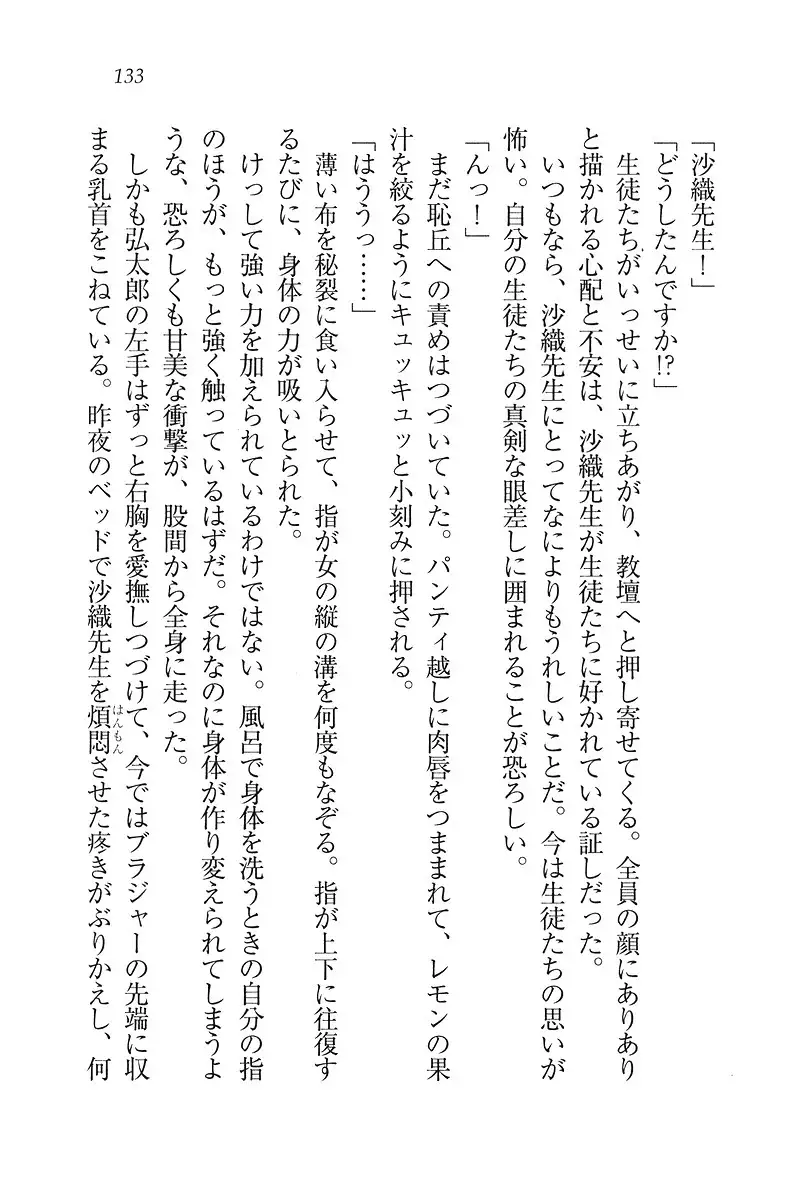 133
「沙織先生！」
「どうしたんですか!?」
生徒たちがいっせいに立ちあがり、教壇へと押し寄せてくる。全員の顔にありあり
と描かれる心配と不安は、沙織先生が生徒たちに好かれている証しだった。
いつもなら、沙織先生にとってなによりもうれしいことだ。今は生徒たちの思いが
怖い。自分の生徒たちの真剣な眼差しに囲まれることが恐ろしい。
「んっ！」
まだ恥丘への責めはつづいていた。パンティ越しに肉唇をつままれて、レモンの果
汁を絞るようにキュッキュッと小刻みに押される。
「はううっ……」
薄い布を秘裂に食い入らせて、指が女の縦の溝を何度もなぞる。指が上下に往復す
るたびに、身体の力が吸いとられた。
けっして強い力を加えられているわけではない。風呂で身体を洗うときの自分の指
のほうが、もっと強く触っているはずだ。それなのに身体が作り変えられてしまうよ
うな、恐ろしくも甘美な衝撃が、股間から全身に走った。
しかも弘太郎の左手はずっと右胸を愛撫しつづけて、今ではブラジャーの先端に収
まる乳首をこねている。昨夜のベッドで沙織先生を煩悶はんもんさせた疼きがぶりかえし、何